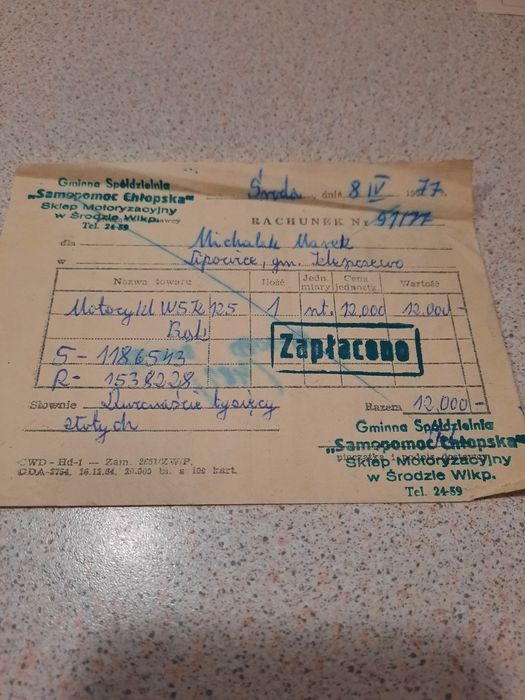 Gminna Spółdzielnia
„Samopomoc Chłopska"
Sklep Motoryzacyjny
w Środzie Wlkp.
Tel. 24-59
Środa, dnia 8 IV 1977 r.
RACHUNEK Nr 57/77
dla Michalak Marek
w Lipowice, gm.
Nazwa towaru Ilość Jedn. miary Cena jednostk. Wartość
Motocykl WSK 125 1 szt. 12.000 12.000 -
Zapłacono
S - 1186543
R - 1538228
Słownie Dwanaście tysięcy Razem 12.000 -
złotych
Gminna Spółdzielnia
„Samopomoc Chłopska"
pieczątka i podpis dostawcy
Sklep Motoryzacyjny
w Środzie Wlkp.
Tel. 24-59
CWD - Hd-1 — Zam. 2651/ZW/P.